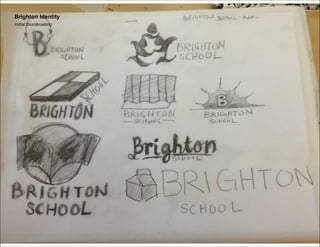 Brighton Identity
initial thumbnailing
B BRIGHTON
SCHOOL
BRIGHTON
SCHOOL
SCHOOL
BRIGHTON
BRIGHTON
SCHOOL
B
BRIGHTON
SCHOOL
Brighton
SCHOOL
BRIGHTON
SCHOOL
BRIGHTON
SCHOOL